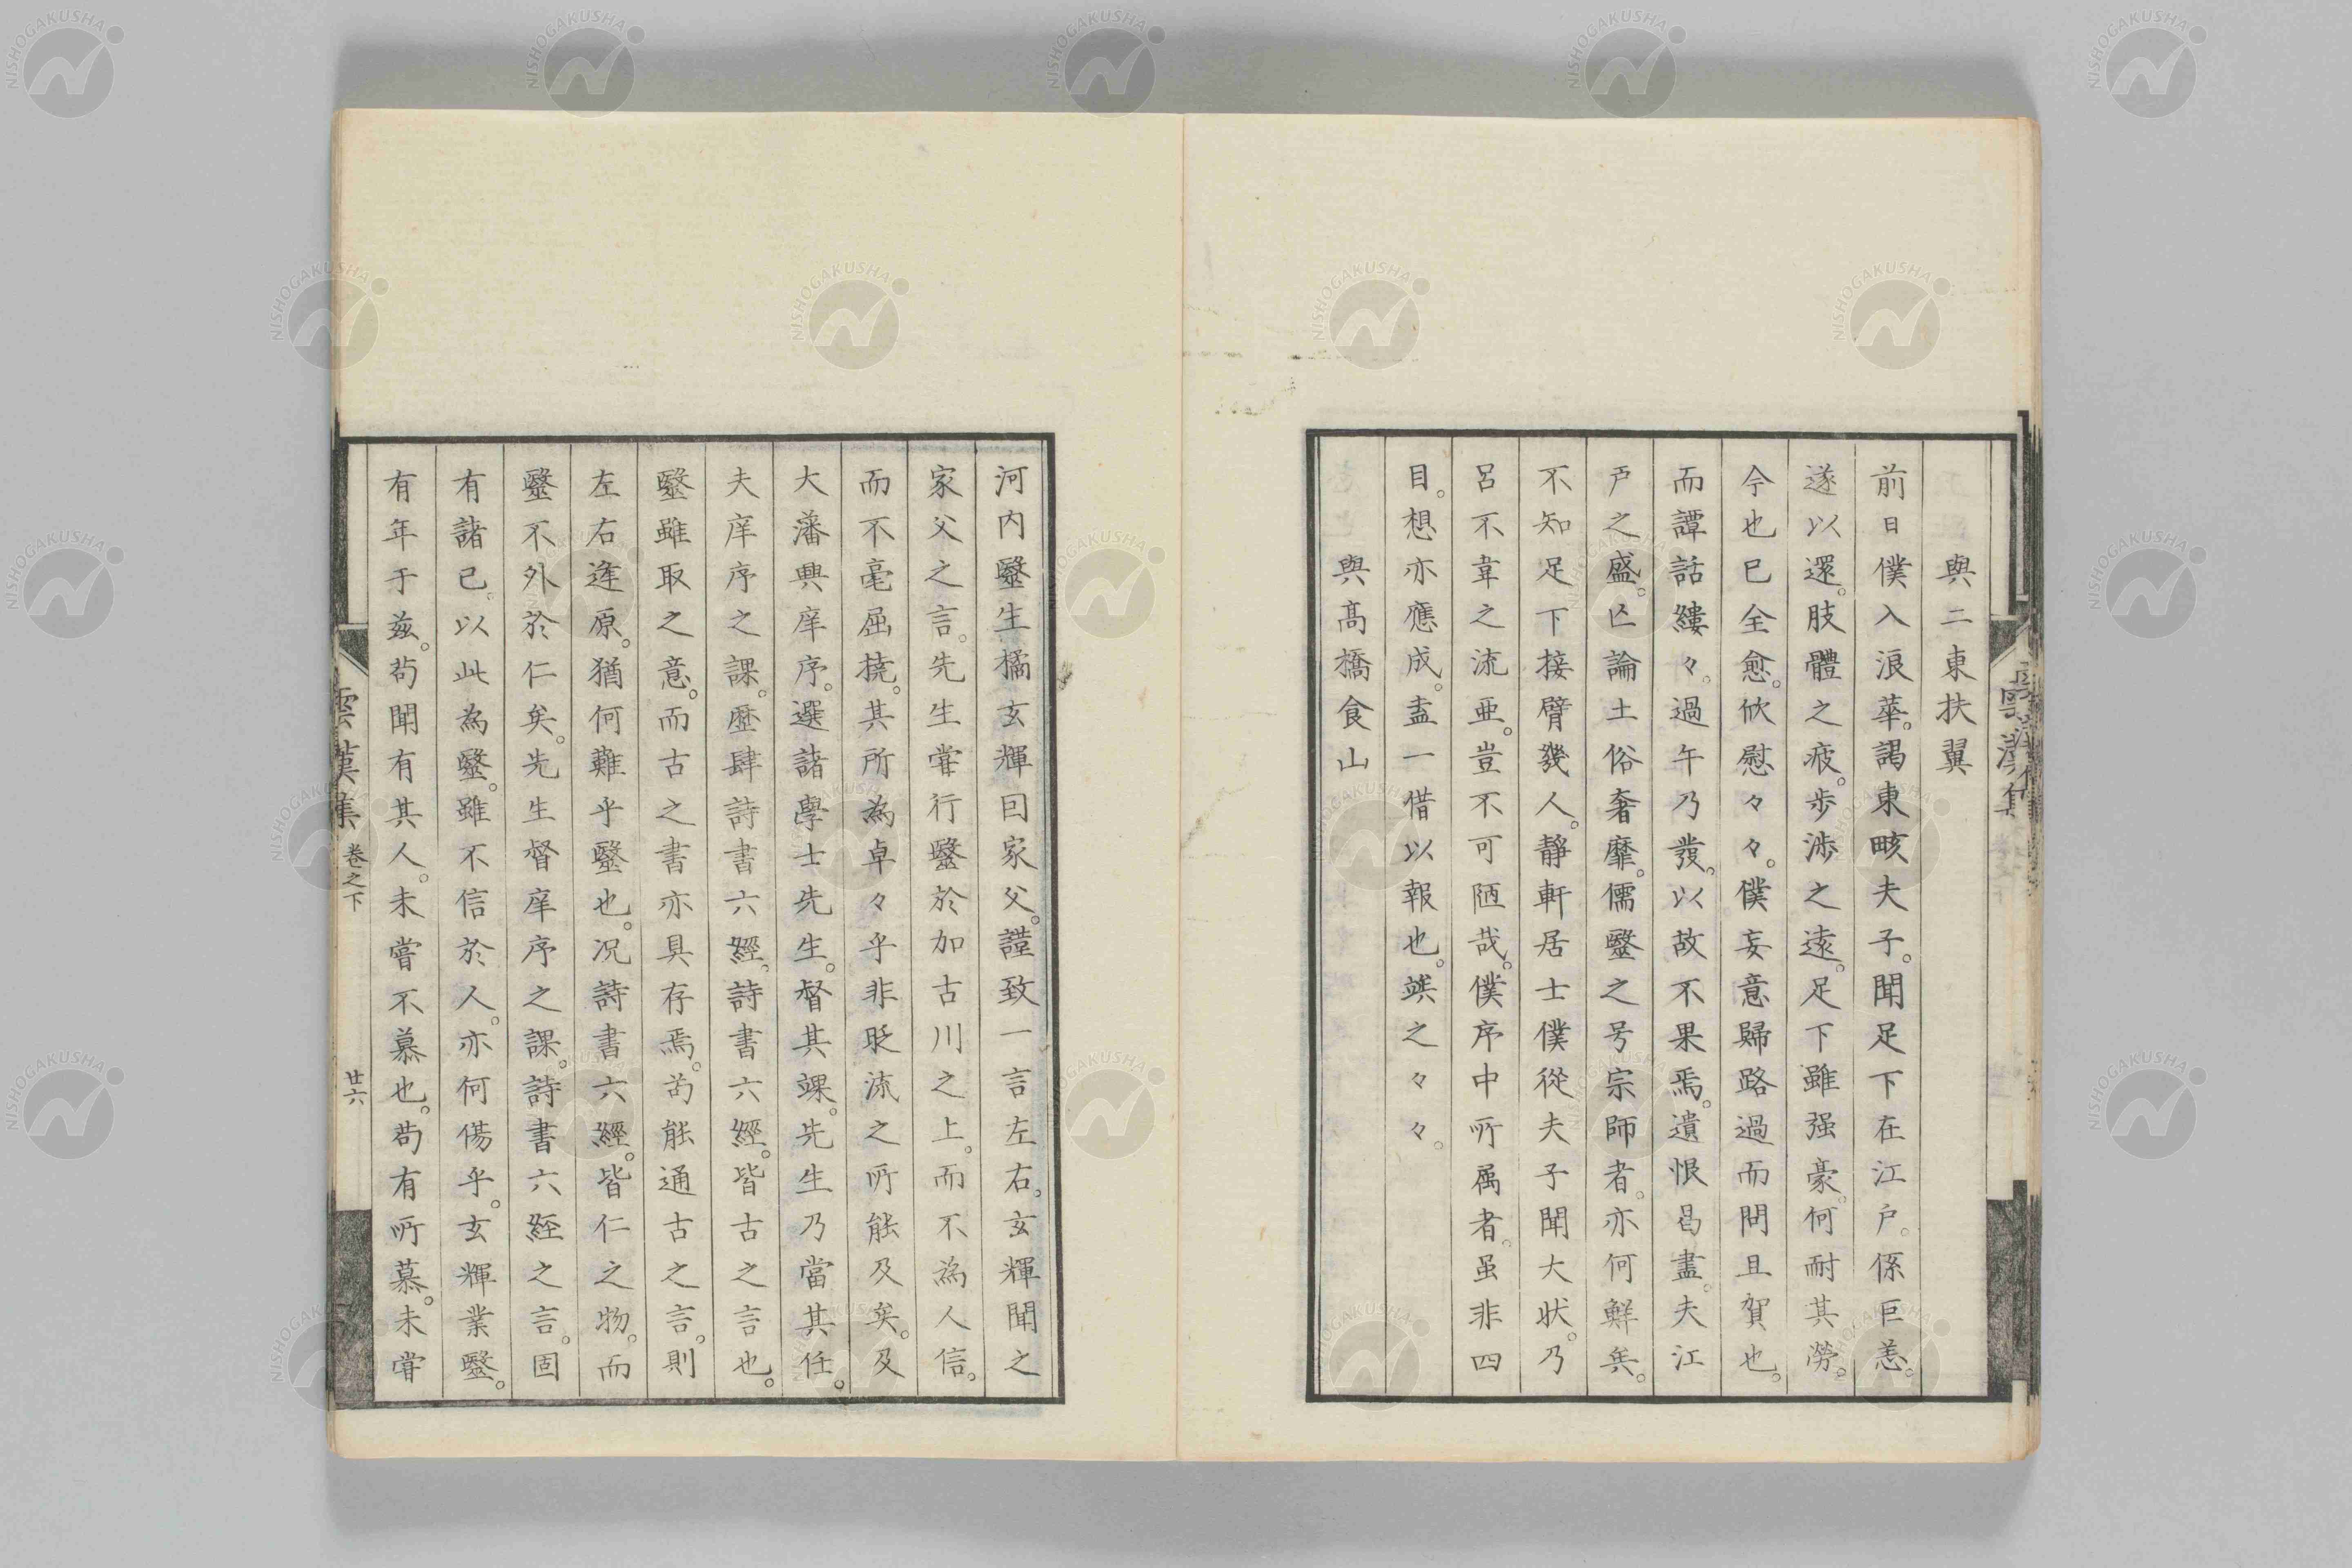 與二東扶翼
前日僕入浪華。謁東畡夫子。聞足下在江戸。係巨恙。
遂以還。肢體之疲。歩渉之遠。足下雖强豪。何耐其勞。
今也已全愈。欣慰々々。僕妄意歸路過而問且賀也。
而譚話縷々。過午乃發。以故不果焉。遺恨曷盡。夫江
戸之盛。亡論土俗奢靡。儒毉之号宗師者。亦何鮮矣。
不知足下接臂幾人。靜軒居士僕從夫子聞大状。乃
呂不韋之流亜。豈不可陋哉。僕序中所属者。虽非四
目。想亦應成。盍一借以報也。竢之々々。
與高橋食山
河内毉生橘玄輝曰家父。謹致一言左右。玄輝聞之
家父之言。先生甞行毉於加古川之上。而不為人信。
而不毫屈撓。其所為卓々乎非眨流之所能及矣。及
大藩興庠序。選諸學士先生。督其課。先生乃當其任。
夫庠序之課。歴肄詩書六經。詩書六經。皆古之言也。
毉雖取之意。而古之書亦具存焉。苟能通古之言。則
左右逢原。猶何難乎毉也。况詩書六經。皆仁之物。而
毉不外於仁矣。先生督庠序之課。詩書六経之言。固
有諸己。以此為毉。雖不信於人。亦何傷乎。玄輝業毉。
有年于茲。苟聞有其人。未嘗不慕也。苟有所慕。未甞
雲漢集 卷之下 廿六
NISHOGAKUSHA